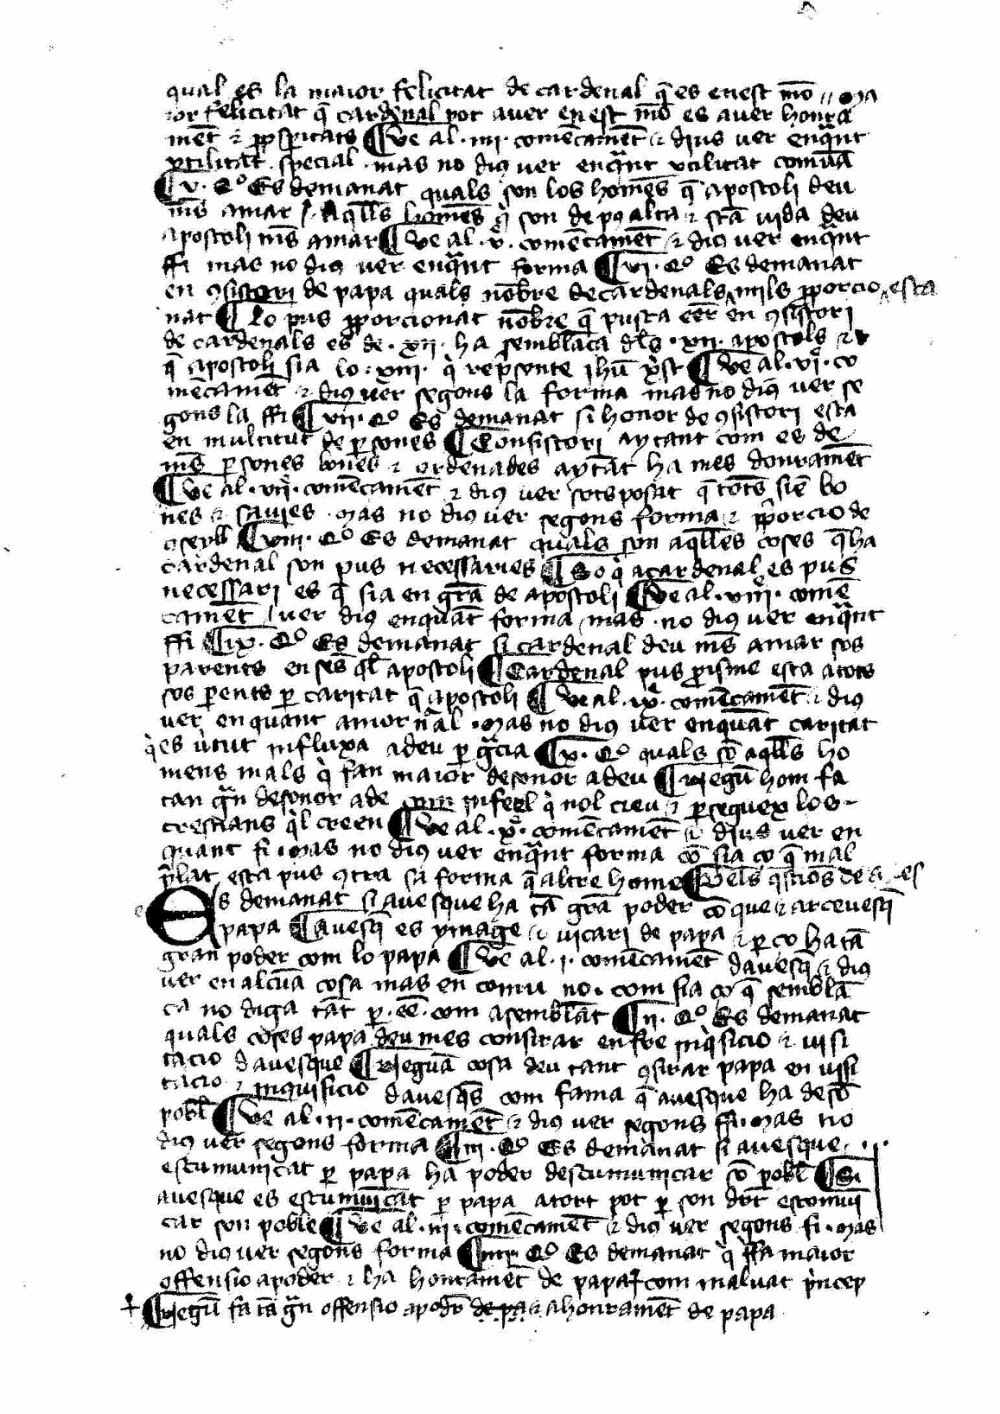 qual es la maior felicitat de cardenal q̄ es en est mō // ma
ior felicitat q̄ cardenal pot aver en est mō es aver honra
mēt ⁊ ꝓsperitats ¶ Ve al · iiii · comēcamēt ⁊ dius ver enquāt
vtilitat special · mas no diꝯ ver enquāt vtilitat comuna
¶ v · qº Es demanat quals son los homēs q̄ apostoli deu
mēs amar / Aqlls homēs q̇ son de pꝯ alta ⁊ sctā vida deu
apostoli mēs amar ¶ Ve al · v · comēcamēt ⁊ diꝯ ver enquāt
ffi mas no diꝯ ver enquāt forma ¶ vi · qº Es demanat
en ꝯsistori de papa quals nōbre de cardenals mils ꝓporcio esta
nat ¶ Lo pus ꝓporcionat nōbre q̄ pusca eēr en ꝯsistori
de cardenals es de · xii · ha semblāca dls · xii · apostols ⁊
q̄ apostoli sia lo · xiii · q̇ repsente ihū xr̄st ¶ Ve al · vi · co
mēcamēt ⁊ diꝯ ver segons la forma mas no diꝯ ver se
gons la ffi ¶ vii · qº Es demanat si honor de ꝯsistori esta
en multitut de ꝑsones ¶ Consistori aytant com es de
mēs ꝑsones bones ⁊ ordenades aytāt ha mes donramēt
¶ Ve al · vii · comēcamēt ⁊ diꝯ ver sots posat q̄ tots siē bo
nes ⁊ savies · mas no diꝯ ver segons forma ⁊ ꝓporcio de
ꝯseyll ¶ viii · qº Es demanat quals son aqlles coses q̄ ha
cardenal son pus necessaries ¶ So q̇ a cardenal es pus
necessari es q̄ sia en grā de apostoli ¶ Ve al · viii · comē
camēt / ver diꝯ enquāt forma / mas · no diꝯ ver enquāt
ffi ¶ ix · qº Es demanat si cardenal deu mēs amar sos
parents en ses ql apostoli ¶ Cardenal pus ꝓisme esta a tots
sos ꝑents ꝑ caritat q̄ apostoli ¶ Ve al · ix · comēcamēt ⁊ diꝯ
ver enquant amor nāl · mas no diꝯ ver enquāt caritat
q̇ es v̇tut influxa a deu ꝑ grācia ¶ x · qº quals sō aqlls ho
mens mals q̇ fan maior desonor a deu ¶ Negū hom fa
tan grān desonor a de infeel q̇ nol creu ⁊ ꝑsequex los
crestians ql creen ¶ Ve al · x · comēcamēt ⁊ dius ver en
quant fi · mas no diꝯ ver enquāt forma cō sia co q̄ mal
plat esta pus ꝯtra sa forma q̄ altre home ¶ Dels qstiōs de
Es demanat si avesque ha tā gra poder co que ⁊ arcevesq̄
papa ¶ avesq̄ es ymage ⁊ vicari de papa ⁊ ꝑ co ha tā
gran poder com lo papa ¶ Ve al · i · comēcamēt davesq̄ ⁊ diꝯ
ver en alcuā cosa mas en comu no · com sia co q̄ semblā
ca no diga tāt ꝑ · eē · com asemblāt ¶ ii · qº Es demanat
quals coses papa deu mes consirar enfre inq̇sicio ⁊ visi
tacio davesque ¶ Neguā cosa deu tant ꝯsirar papa en visi
tacio ⁊ inquisicio davesqs com fama q̄ avesque ha de sō
pobl ¶ Ve al · ii · comēcamēt ⁊ diꝯ ver segons ffi · mas no
diꝯ ver segons forma ¶ iii · qº Es demanat si avesque ·
escumunicat ꝑ papa ha poder descumunicar sō pobl ¶ Si
avesque es escumunicat ꝑ papa a tort pot ꝑ son dret escomuni
car son poble ¶ Ve al · iii · comēcamēt ⁊ diꝯ ver segons fi · mas
no diꝯ ver segons forma ¶ iiii · qº Es demanat q̇ ffa maior
offensio a poder ⁊ ha honramēt de papa ☩ com malvat pncep
☩ ¶ Negū fa tā grān offensio a podr de pa ⁊ a honramēt de papa